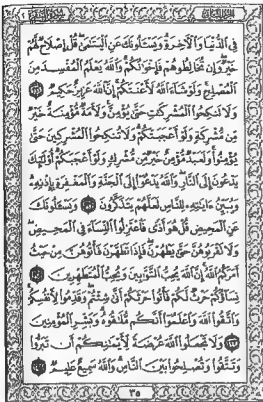 فِي الدُّنْيَا وَالْآخِرَةِ وَيَسْـَٔلُونَكَ عَنِ الْيَتَٰمَىٰ قُلْ إِصْلَاحٌ لَّهُمْ
خَيْرٌ وَإِن تُخَالِطُوهُمْ فَإِخْوَٰنُكُمْ وَاللَّهُ يَعْلَمُ الْمُفْسِدَ مِنَ
الْمُصْلِحِ وَلَوْ شَاءَ اللَّهُ لَأَعْنَتَكُمْ إِنَّ اللَّهَ عَزِيزٌ حَكِيمٌ ٢٢٠
وَلَا تَنكِحُوا الْمُشْرِكَٰتِ حَتَّىٰ يُؤْمِنَّ وَلَأَمَةٌ مُّؤْمِنَةٌ خَيْرٌ
مِّن مُّشْرِكَةٍ وَلَوْ أَعْجَبَتْكُمْ وَلَا تُنكِحُوا الْمُشْرِكِينَ حَتَّىٰ
يُؤْمِنُوا وَلَعَبْدٌ مُّؤْمِنٌ خَيْرٌ مِّن مُّشْرِكٍ وَلَوْ أَعْجَبَكُمْ أُولَٰئِكَ
يَدْعُونَ إِلَى النَّارِ وَاللَّهُ يَدْعُوا إِلَى الْجَنَّةِ وَالْمَغْفِرَةِ بِإِذْنِهِ
وَيُبَيِّنُ ءَايَٰتِهِ لِلنَّاسِ لَعَلَّهُمْ يَتَذَكَّرُونَ ٢٢١ وَيَسْـَٔلُونَكَ
عَنِ الْمَحِيضِ قُلْ هُوَ أَذًى فَاعْتَزِلُوا النِّسَاءَ فِي الْمَحِيضِ
وَلَا تَقْرَبُوهُنَّ حَتَّىٰ يَطْهُرْنَ فَإِذَا تَطَهَّرْنَ فَأْتُوهُنَّ مِنْ حَيْثُ
أَمَرَكُمُ اللَّهُ إِنَّ اللَّهَ يُحِبُّ التَّوَّٰبِينَ وَيُحِبُّ الْمُتَطَهِّرِينَ ٢٢٢
نِسَاؤُكُمْ حَرْثٌ لَّكُمْ فَأْتُوا حَرْثَكُمْ أَنَّىٰ شِئْتُمْ وَقَدِّمُوا لِأَنفُسِكُمْ
وَاتَّقُوا اللَّهَ وَاعْلَمُوا أَنَّكُم مُّلَٰقُوهُ وَبَشِّرِ الْمُؤْمِنِينَ
٢٢٣ وَلَا تَجْعَلُوا اللَّهَ عُرْضَةً لِّأَيْمَٰنِكُمْ أَن تَبَرُّوا
وَتَتَّقُوا وَتُصْلِحُوا بَيْنَ النَّاسِ وَاللَّهُ سَمِيعٌ عَلِيمٌ ٢٢٤
٣٥